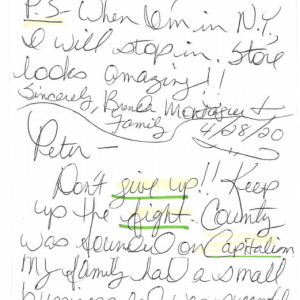 P.S - When I'm in N.Y,
I will stop in. Store
looks amazing!!
Sincerely, Brenda &
family
4/28/20
Peter -
Don't give up!! Keep
up the fight. County
was founded on Capitalism
My family had a small
business